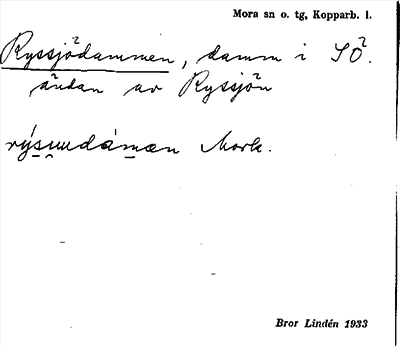 Mora sn o. tg, Kopparb. l.
Ryssjödammen, damm i SÖ.
ändan av Ryssjön
Mork.
Bror Lindén 1933